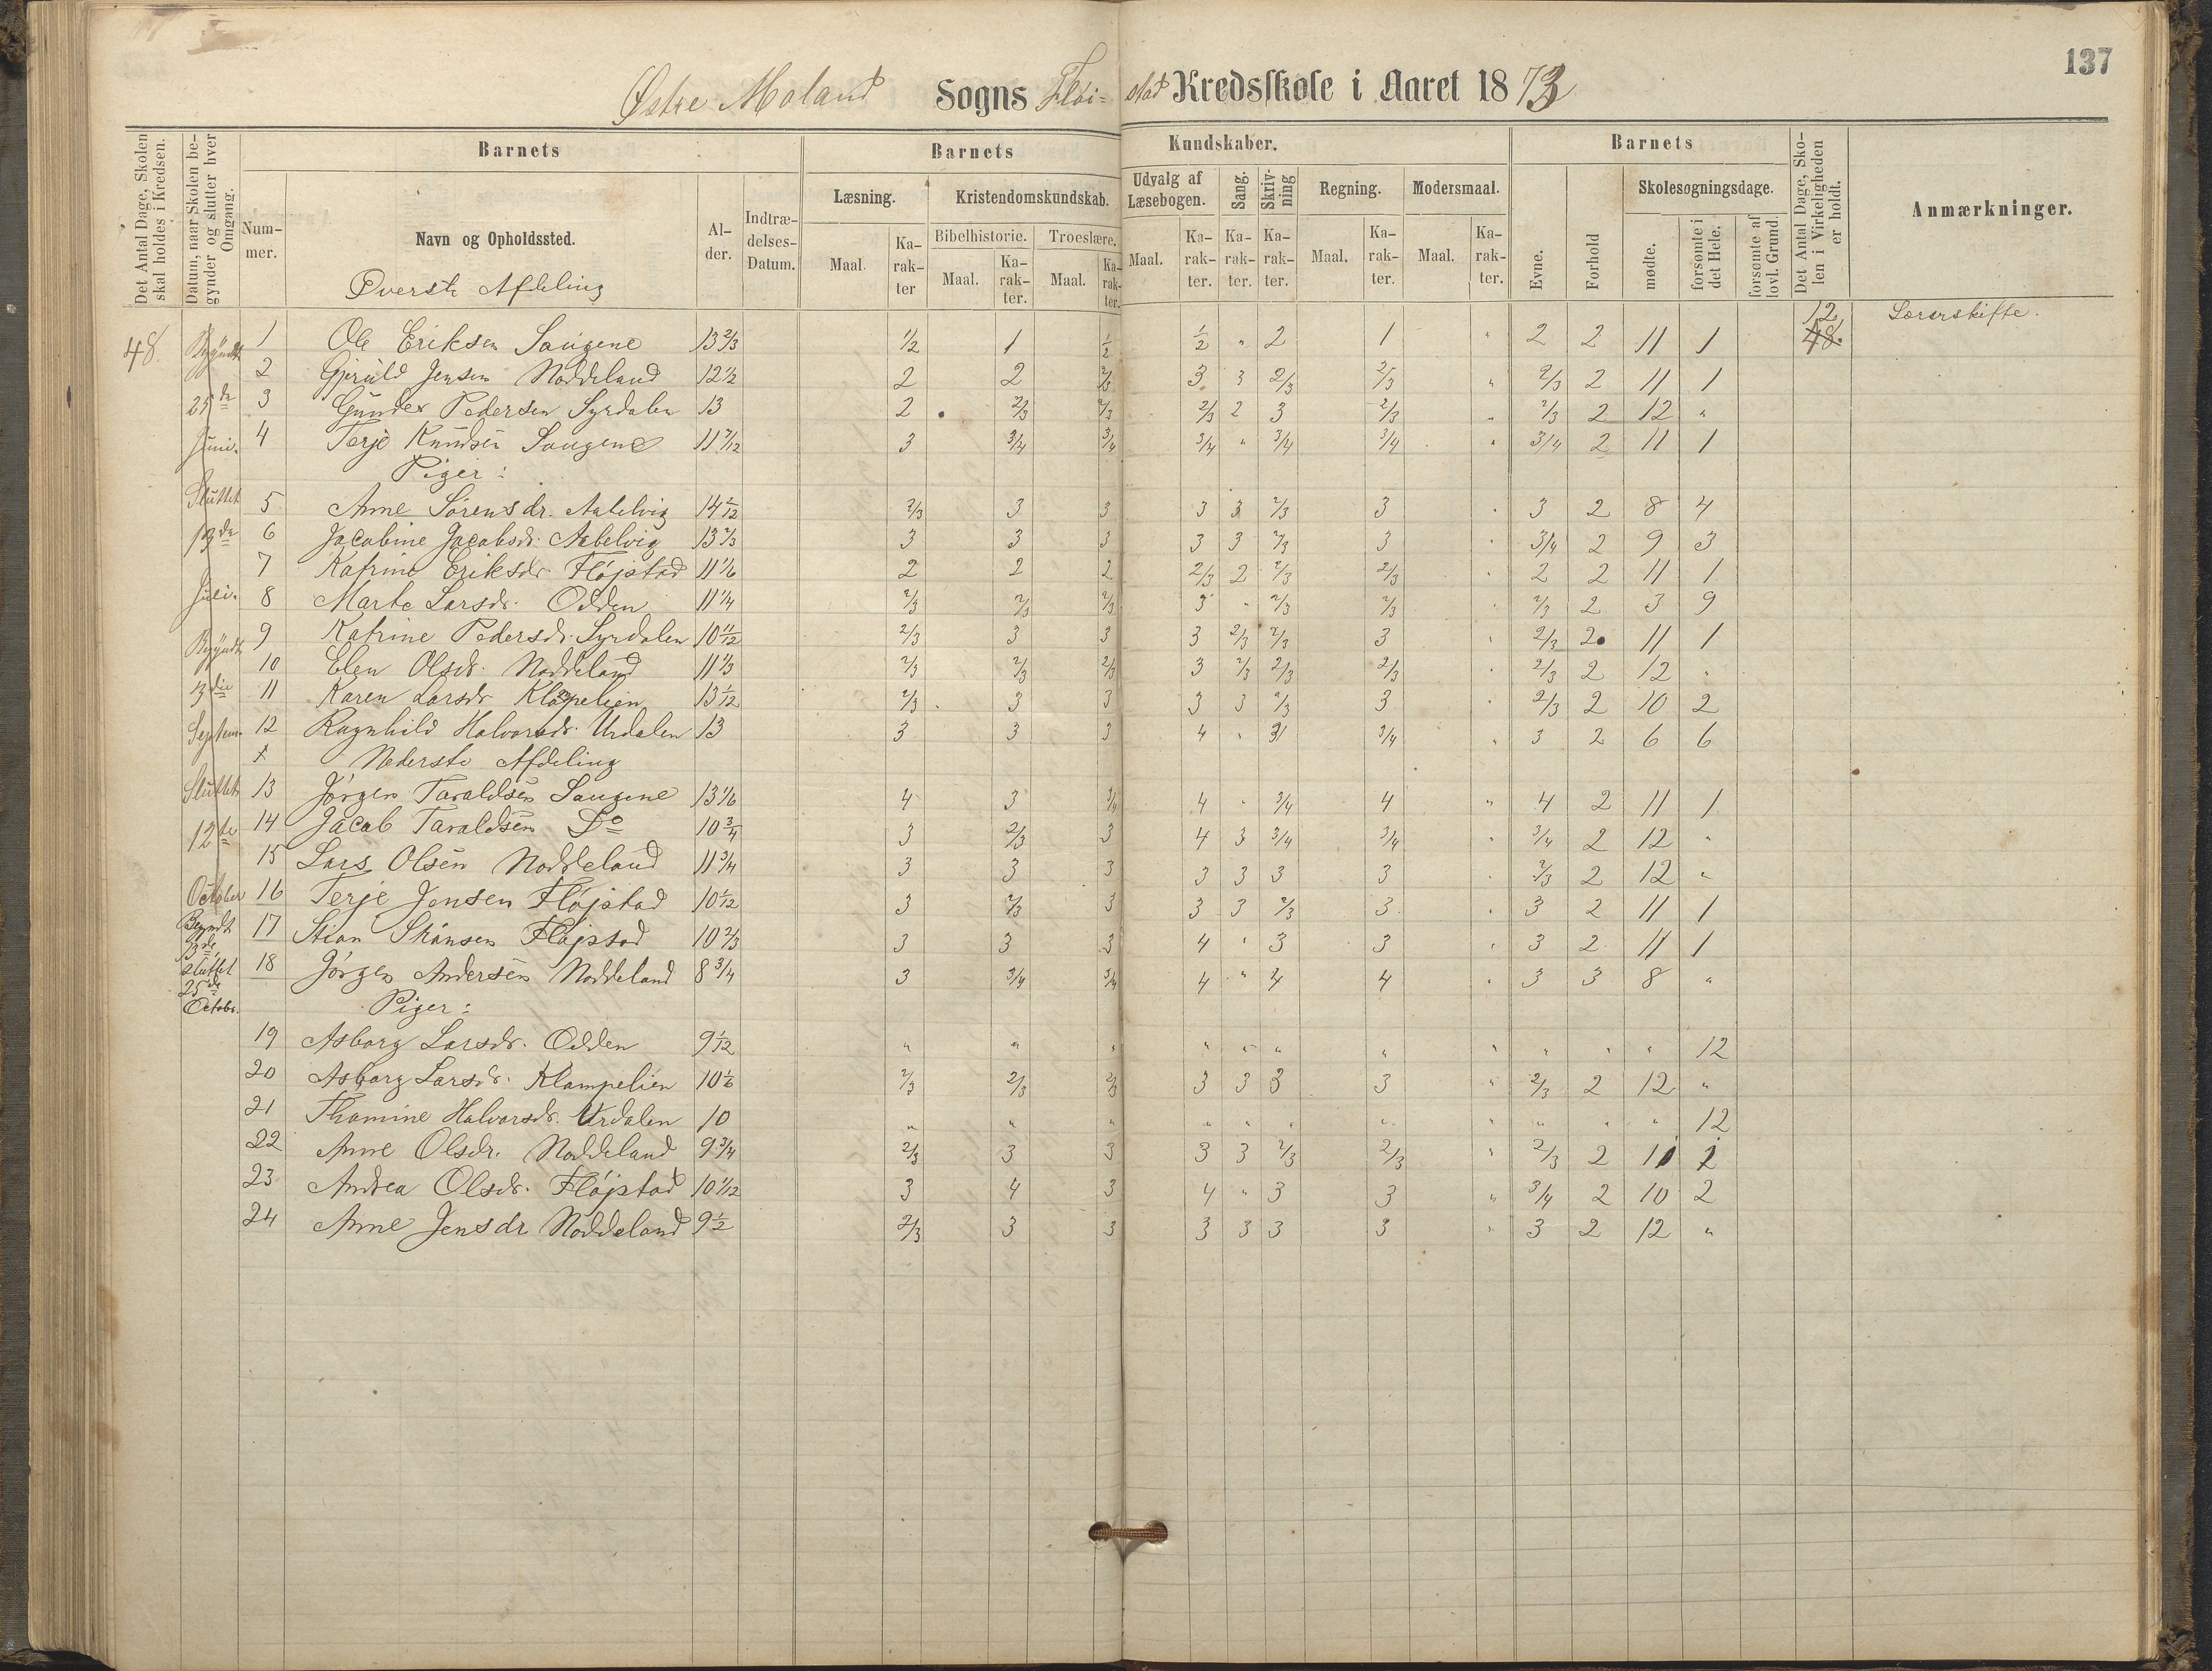 137
Østre Moland Sogns Fløi= stad Kredsskole i Aaret 1873
Det Antal Dage, Skolen skal holdes i Kredsen.
Datum, naar Skolen begynder og slutter hver Omgang.
Barnets
Nummer.
Navn og Opholdssted.
Alder.
Indtrædelses-Datum.
Barnets Kundskaber.
Læsning.
Kristendomskundskab.
Bibelhistorie.
Troeslære.
Udvalg af Læsebogen.
Sang.
Skrivning
Regning.
Modersmaal.
Maal.
Karakter
Barnets
Evne.
Forhold
Skolesøgningsdage.
mødte.
forsømte i det Hele.
forsømte af lovl. Grund.
Det Antal Dage, Skolen i Virkeligheden er holdt.
Anmærkninger.
Øverste Afdeling
12 Lærerskifte.
48. Begyndt 1 Ole Eriksen Saugene 13 2/3 1/2 1 1/2 1/2 " 2 1 " 2 2 11 1 48.
2 Gjeruld Jensen Noddeland 12 1/2 2 2 2/3 3 3 2/3 2/3 " 2/3 2 11 1
25de 3 Gunder Pedersen Syrdalen 13 2 2/3 2/3 2/3 2 3 2/3 " 2/3 2 12 "
Juni. 4 Terje Knudsen Saugene 11 7/12 3 3/4 3/4 3/4 " 3/4 3/4 " 3/4 2 11 1
Piger:
Sluttet 5 Anne Sørensdr. Aabelvig 14 2/12 2/3 3 3 3 3 2/3 3 " 3 2 8 4
13de 6 Jacobine Jacobsdr. Aabelvig 13 2/3 3 3 3 3 3 2/3 3 " 3/4 2 9 3
7 Katrine Eriksdr. Fløjstad 11 1/6 2 2 2 2/3 2 2/3 2/3 " 2 2 11 1
Juli. 8 Marte Larsdr. Odden 11 1/4 2/3 2/3 2/3 3 " 2/3 2/3 " 2/3 2 3 9
Begyndt 9 Katrine Pedersdr. Syrdalen 10 11/12 2/3 3 3 3 2/3 2/3 3 " 2/3 2 11 1
10 Elen Olsdr. Noddeland 11 1/3 2/3 2/3 2/3 3 2/3 2/3 2/3 " 2/3 2 12 "
11 Karen Larsdr Klampelien 13 1/12 2/3 3 3 3 3 2/3 3 " 2/3 2 10 2
Septem. 12 Ragnhild Halvorsdr. Urdalen 13 3 3 3 4 " 3 3/4 " 3 2 6 6
Nederste Afdeling
Sluttet 13 Jørgen Taraldsen Saugene 13 1/6 4 3 3/4 4 " 3/4 4 " 4 2 11 1
12te 14 Jacob Taraldsen Do 10 3/4 3 2/3 3 4 3 3/4 3/4 " 3/4 2 12 "
15 Lars Olsen Noddeland 11 3/4 3 3 3 3 3 3 3 " 2/3 2 12 "
October 16 Terje Jensen Fløjstad 10 1/12 3 2/3 3 3 3 2/3 3 " 3 2 11 1
Begyndt 17 Stian Skånsen Fløjstad 10 2/3 3 3 3 4 " 3 3 " 3 2 11 1
13de
sluttet 18 Jørgen Andersen Noddeland 8 3/4 3 3/4 3/4 4 " 4 4 " 3 3 8 "
25de
Octobr.
Piger:
19 Asborg Larsdr. Odden 9 1/12 " " " " " " " " " " " 12
20 Asborg Larsdr. Klampelien 10 1/6 2/3 2/3 2/3 3 3 3 3 " 2/3 2 12 "
21 Thomine Halvorsdr. Urdalen 10 " " " " " " " " " " " 12
22 Anne Olsdr. Noddeland 9 3/4 2/3 3 3 3 3 2/3 2/3 " 2/3 2 11 1
23 Andrea Olsdr. Fløjstad 10 1/12 3 4 3 4 " 3 3 " 3/4 2 10 2
24 Anne Jensdr Noddeland 9 1/2 2/3 3 3 3 3 3 3 " 3 2 12 "